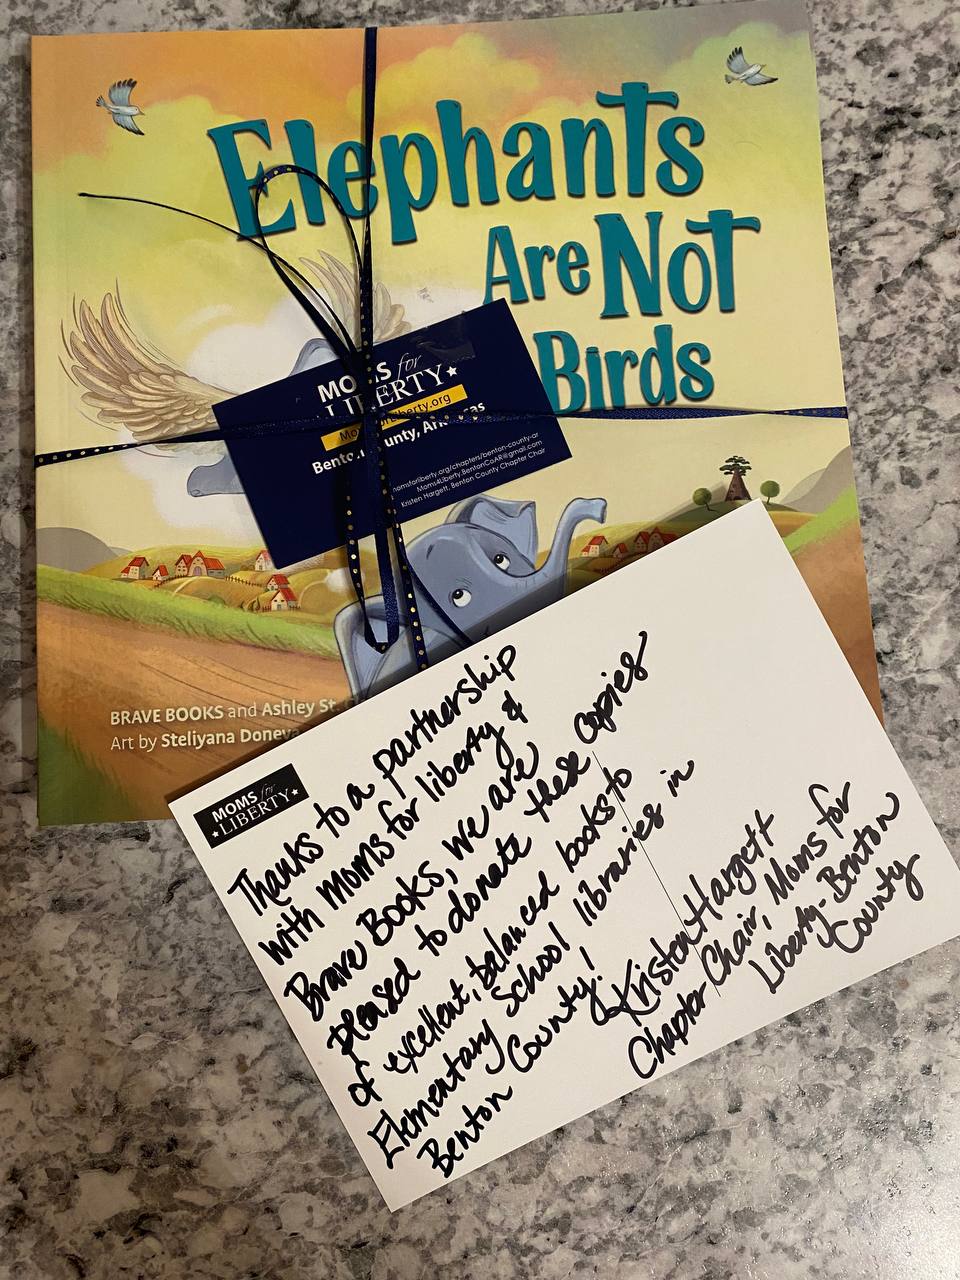 Elephants
Are Not
Birds
MOMS for
LIBERTY
Benton County, Arkansas
momsforliberty.org/chapters/benton-county-ar
Moms4Liberty.BentonCoAR@gmail.com
Kristen Hargett, Benton County Chapter Chair
BRAVE BOOKS and Ashley St.
Art by Steliyana Doneva
MOMS for
LIBERTY
Thanks to a partnership
with Moms for liberty &
Brave Books, we are
pleased to donate these copies
of excellent, balanced books to
Elementary School libraries in
Benton County!
Kristen Hargett
Chapter Chair, Moms for
Liberty-Benton
County